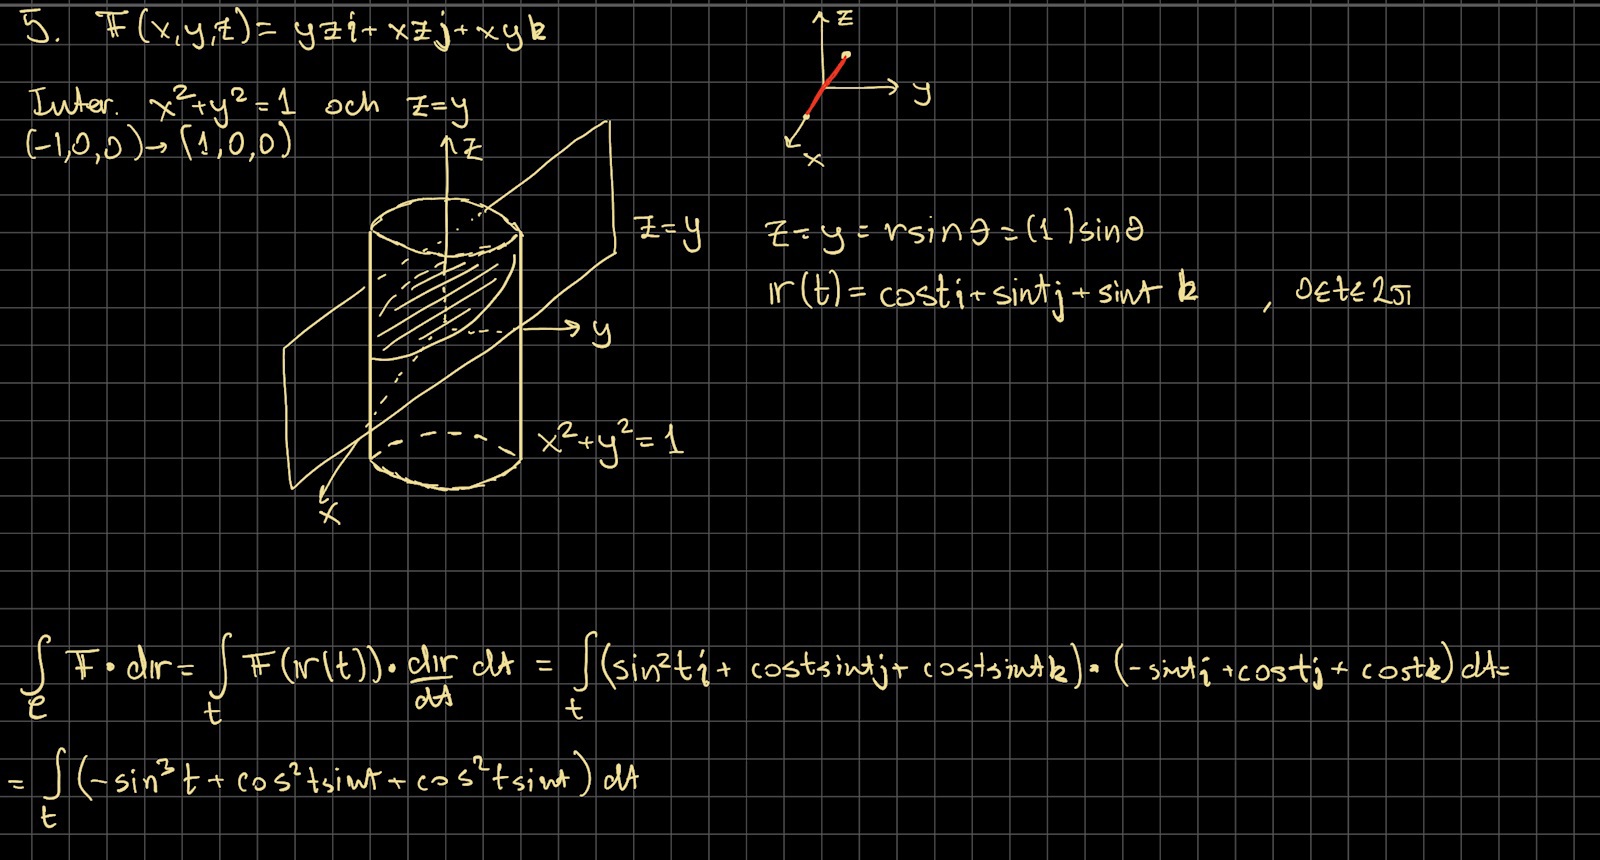 5. F(x,y,z) = yzi + xzj + xyk
Inter. x²+y²=1 och z=y
(-1,0,0)→(1,0,0)
z
y
x
z
z=y
y
x²+y²=1
x
z = y = rsinθ = (1)sinθ
r(t) = costi + sintj + sint k , 0≤t≤2π
∫_C F • dr = ∫_t F(r(t)) • dr/dt dt = ∫_t (sin²ti + costsintj + costsintk) • (-sinti + costj + costk) dt =
= ∫_t (-sin³t + cos²tsint + cos²tsint) dt